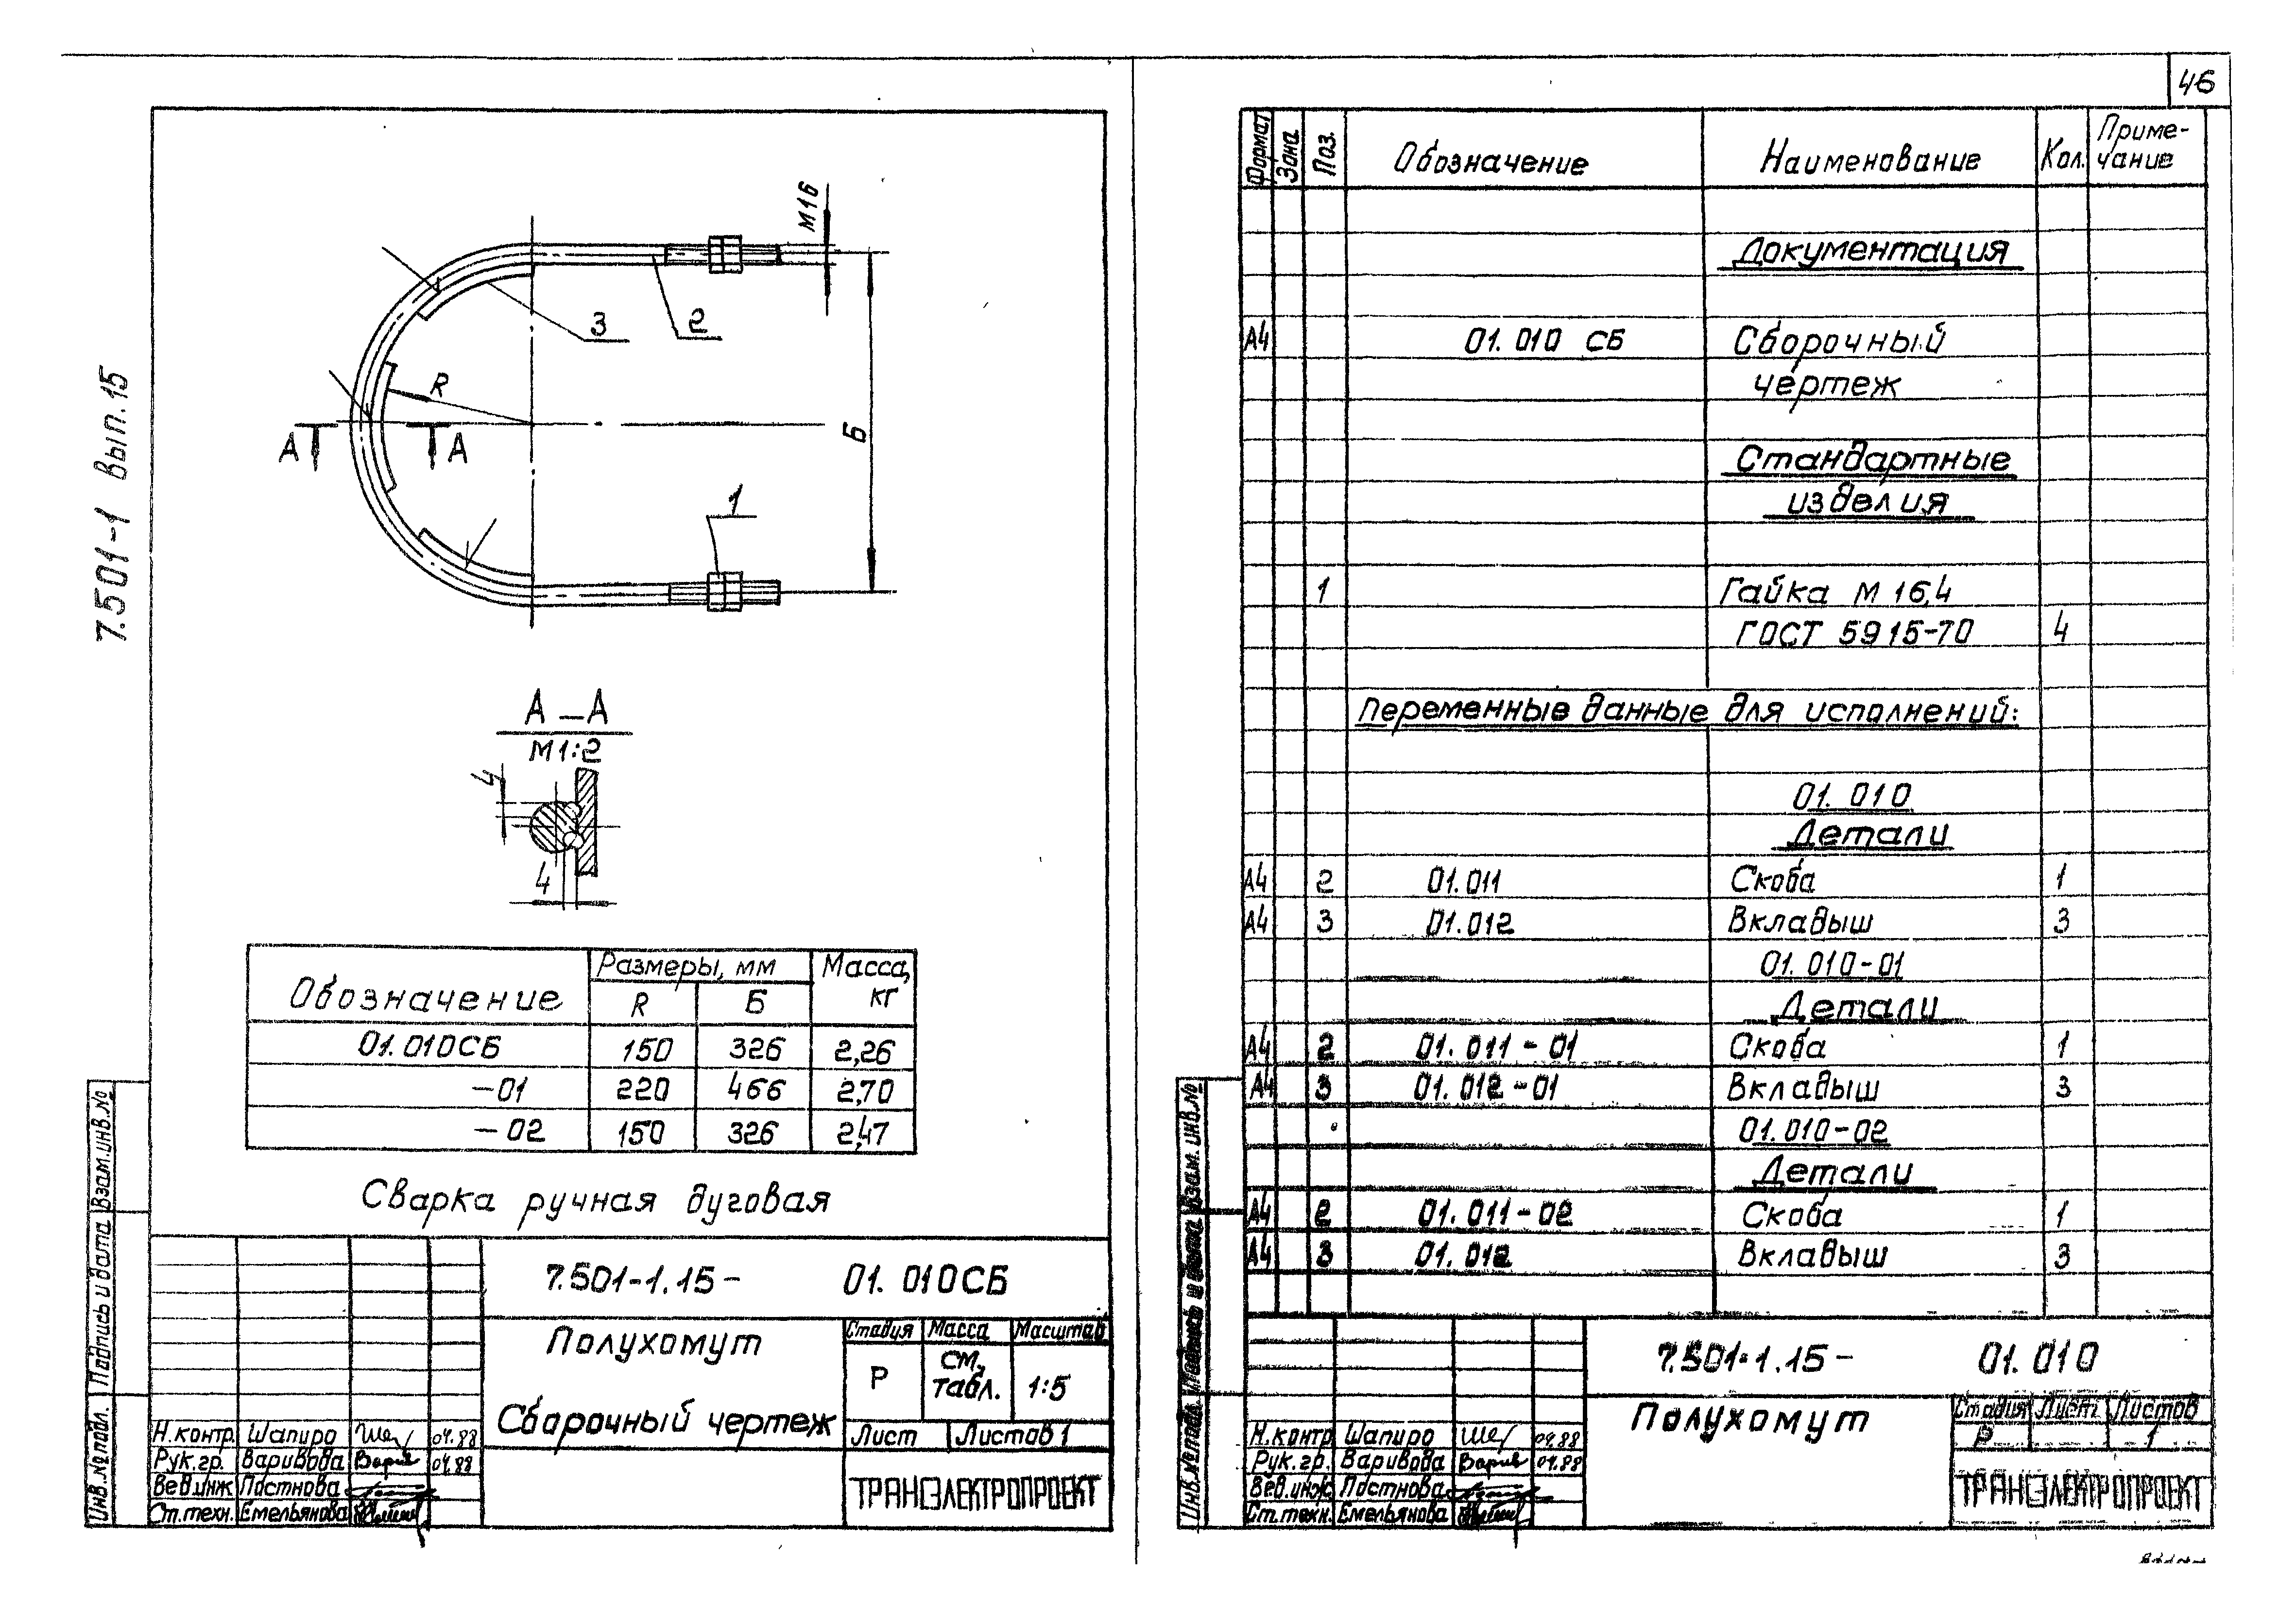 46
7.501-1 Вып.15
М16
3
2
R
Б
А
А
1
А–А
М1:2
4
4
Обозначение
Размеры, мм
Масса, кг
R
Б
01.010СБ 150 326 2,26
–01 220 466 2,70
–02 150 326 2,47
Сварка ручная дуговая
7.501-1.15– 01.010СБ
Полухомут
Сборочный чертеж
Стадия Масса Масштаб
Р см. табл. 1:5
Лист Листов 1
ТРАНСЭЛЕКТРОПРОЕКТ
Н.контр. Шапиро 04.88
Рук.гр. Варивода 04.88
Вед.инж Постнова
Ст.техн. Емельянова
Взам.инв.№
Подпись и дата
Инв.№ подл.
Формат Зона Поз. Обозначение Наименование Кол. Приме-
чание
Документация
А4 01.010 СБ Сборочный
чертеж
Стандартные
изделия
1 Гайка М 16,4
ГОСТ 5915-70 4
Переменные данные для исполнений:
01.010
Детали
А4 2 01.011 Скоба 1
А4 3 01.012 Вкладыш 3
01.010-01
Детали
А4 2 01.011-01 Скоба 1
А4 3 01.012-01 Вкладыш 3
01.010-02
Детали
А4 2 01.011-02 Скоба 1
А4 3 01.012 Вкладыш 3
7.501-1.15– 01.010
Полухомут
Стадия Лист Листов
Р 1
ТРАНСЭЛЕКТРОПРОЕКТ
Н.контр Шапиро 04.88
Рук.гр. Варивода 04.88
Вед.инж Постнова
Ст.техн. Емельянова
Взам.инв.№
Подпись и дата
Инв.№ подл.